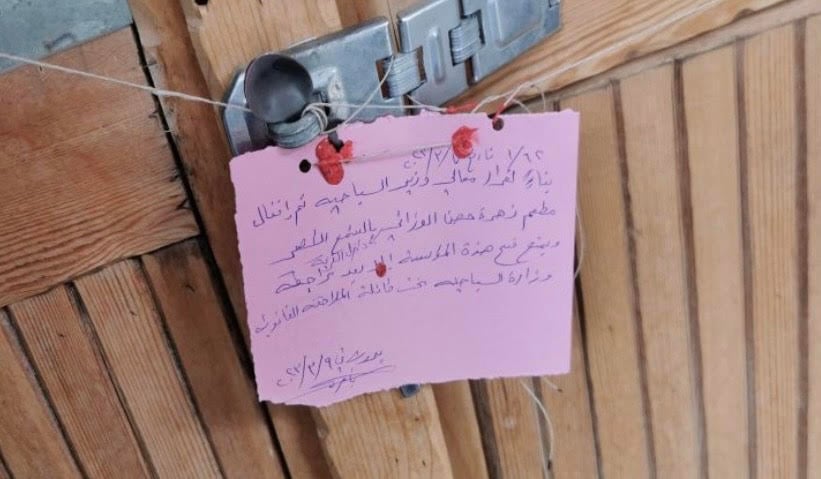 ١/٦٢ تاريخ
بناءً لقرار معالي وزير السياحيه تم اقفال
مطعم زهرة حصن الوزاني بالشمع الأحمر
ويمنع فتح هذه المؤسسة إلا بعد مراجعة
وزارة السياحيه تحت طائلة الملاحقة القانونية